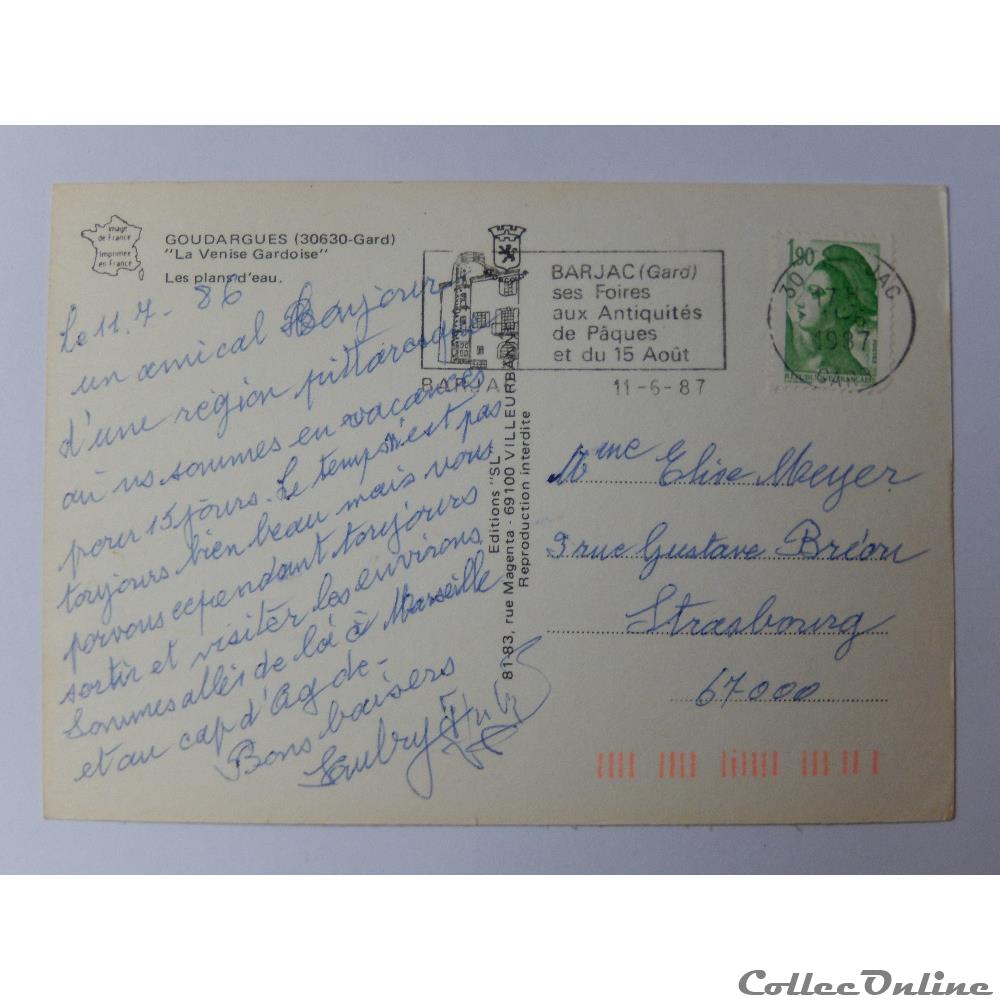 Image
de France
Imprimée
en France
GOUDARGUES (30630-Gard)
"La Venise Gardoise"
Les plans d'eau.
Le 11.7-86
un amical Bonjour
d'une région pittoresque
où ns sommes en vacances
pour 15 jours. Le temps n'est pas
toujours bien beau mais vous
pouvons cependant toujours
sortir et visiter les environs
Sommes allés de là à Marseille
et au cap d'Agde-
Bons baisers
Editions "SL"
81-83, rue Magenta - 69100 VILLEURBANNE
Reproduction interdite
BARJAC (Gard)
ses Foires
aux Antiquités
de Pâques
et du 15 Août
BARJAC
11-6-87
1,90
1987
REPUBLIQUE FRANÇAISE
Mme Elise Meyer
9 rue Gustave Bréon
Strasbourg
67000
CollecOnline